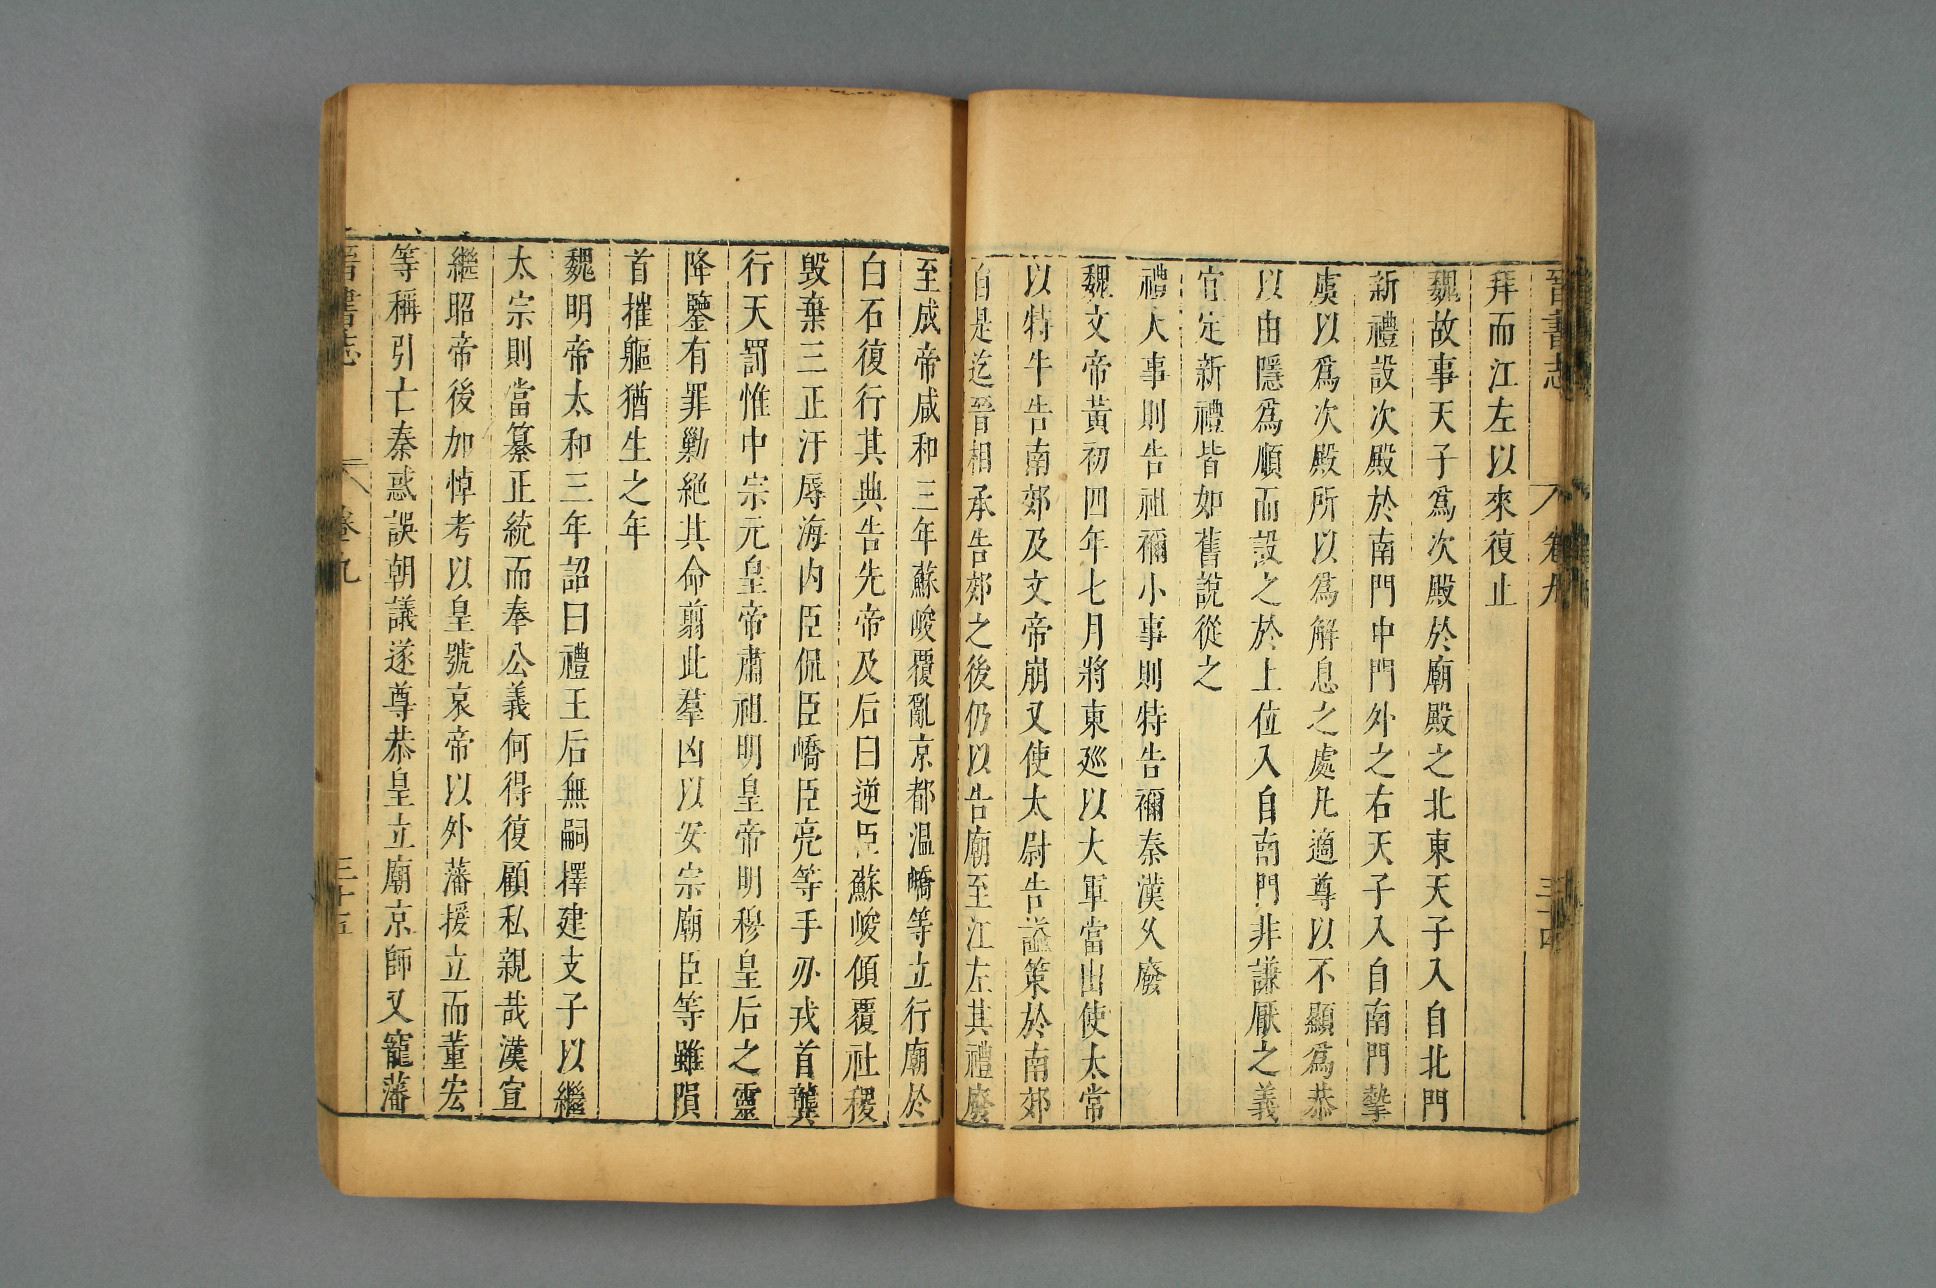 晉書志 卷九 三十四
拜而江左以來復止
魏故事天子爲次殿於廟殿之北東天子入自北門
新禮設次殿於南門中門外之右天子入自南門摯
虞以爲次殿所以爲解息之處凡適尊以不顯爲恭
以由隱爲順而設之於上位入自南門非謙厭之義
宜定新禮皆如舊說從之
禮大事則告祖禰小事則特告禰秦漢久廢
魏文帝黃初四年七月將東巡以大軍當出使太常
以特牛告南郊及文帝崩又使太尉告謚策於南郊
自是迄晉相承告郊之後仍以告廟至江左其禮廢
至成帝咸和三年蘇峻覆亂京都溫嶠等立行廟於
白石復行其典告先帝及后曰逆臣蘇峻傾覆社稷
毀棄三正汙辱海內臣侃臣嶠臣亮等手刃戎首龔
行天罰惟中宗元皇帝肅祖明皇帝明穆皇后之靈
降鑒有罪勦絕其命翦此羣凶以安宗廟臣等雖隕
首摧軀猶生之年
魏明帝太和三年詔曰禮王后無嗣擇建支子以繼
太宗則當纂正統而奉公義何得復顧私親哉漢宣
繼昭帝後加悼考以皇號哀帝以外藩援立而董宏
等稱引亡秦惑誤朝議遂尊恭皇立廟京師又寵藩
晉書志 卷九 三十五